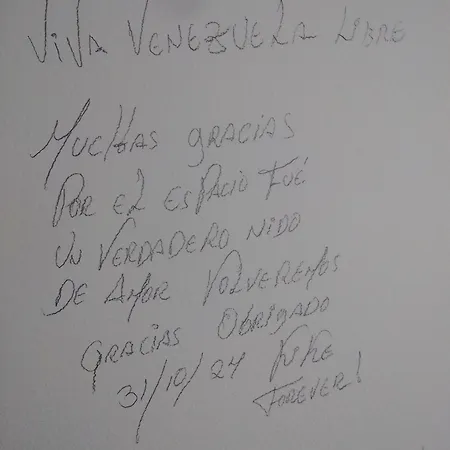 VIVA VENEZUELA LIBRE
MUCHAS gRACIAS
POR EL ESPACIO FUÉ
UN VERDADERO NIDO
DE AMOR VOLVEREMOS
GRACIAS OBRIGADO
31/10/24 KIKE
FOREVER!